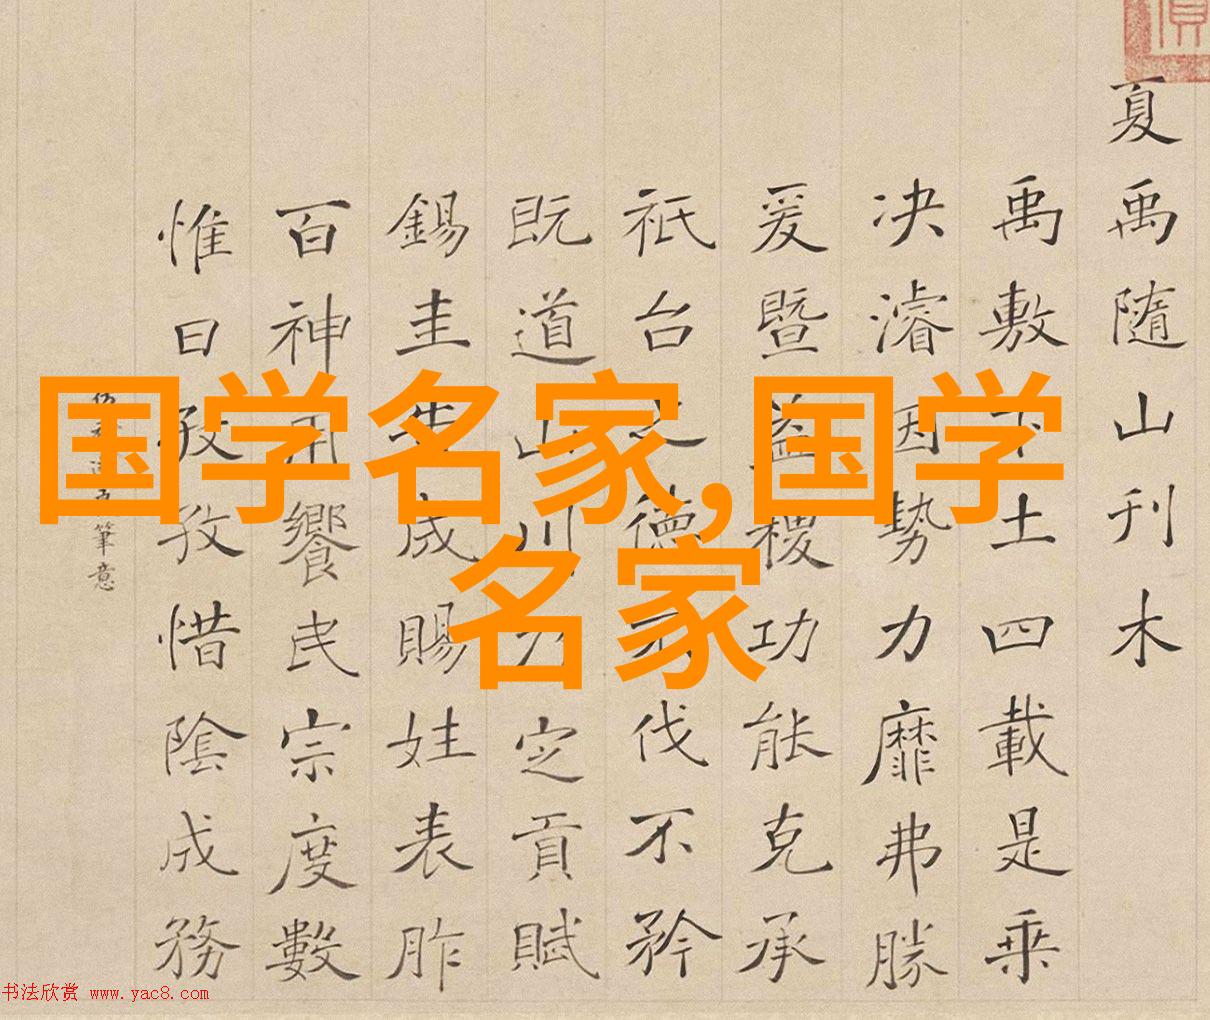 国学名家,国学
名家
夏禹隨山刊木
禹敷下土四載是乘
决濬因勢力靡弗勝
爰暨益稷功能克承
祇台德不伐不矜
既道山川定貢賦
錫圭告成賜姓表胙
百神用饗民宗度數
惟日孜孜惜陰成務
筆意
书法欣赏 www.yac8.com